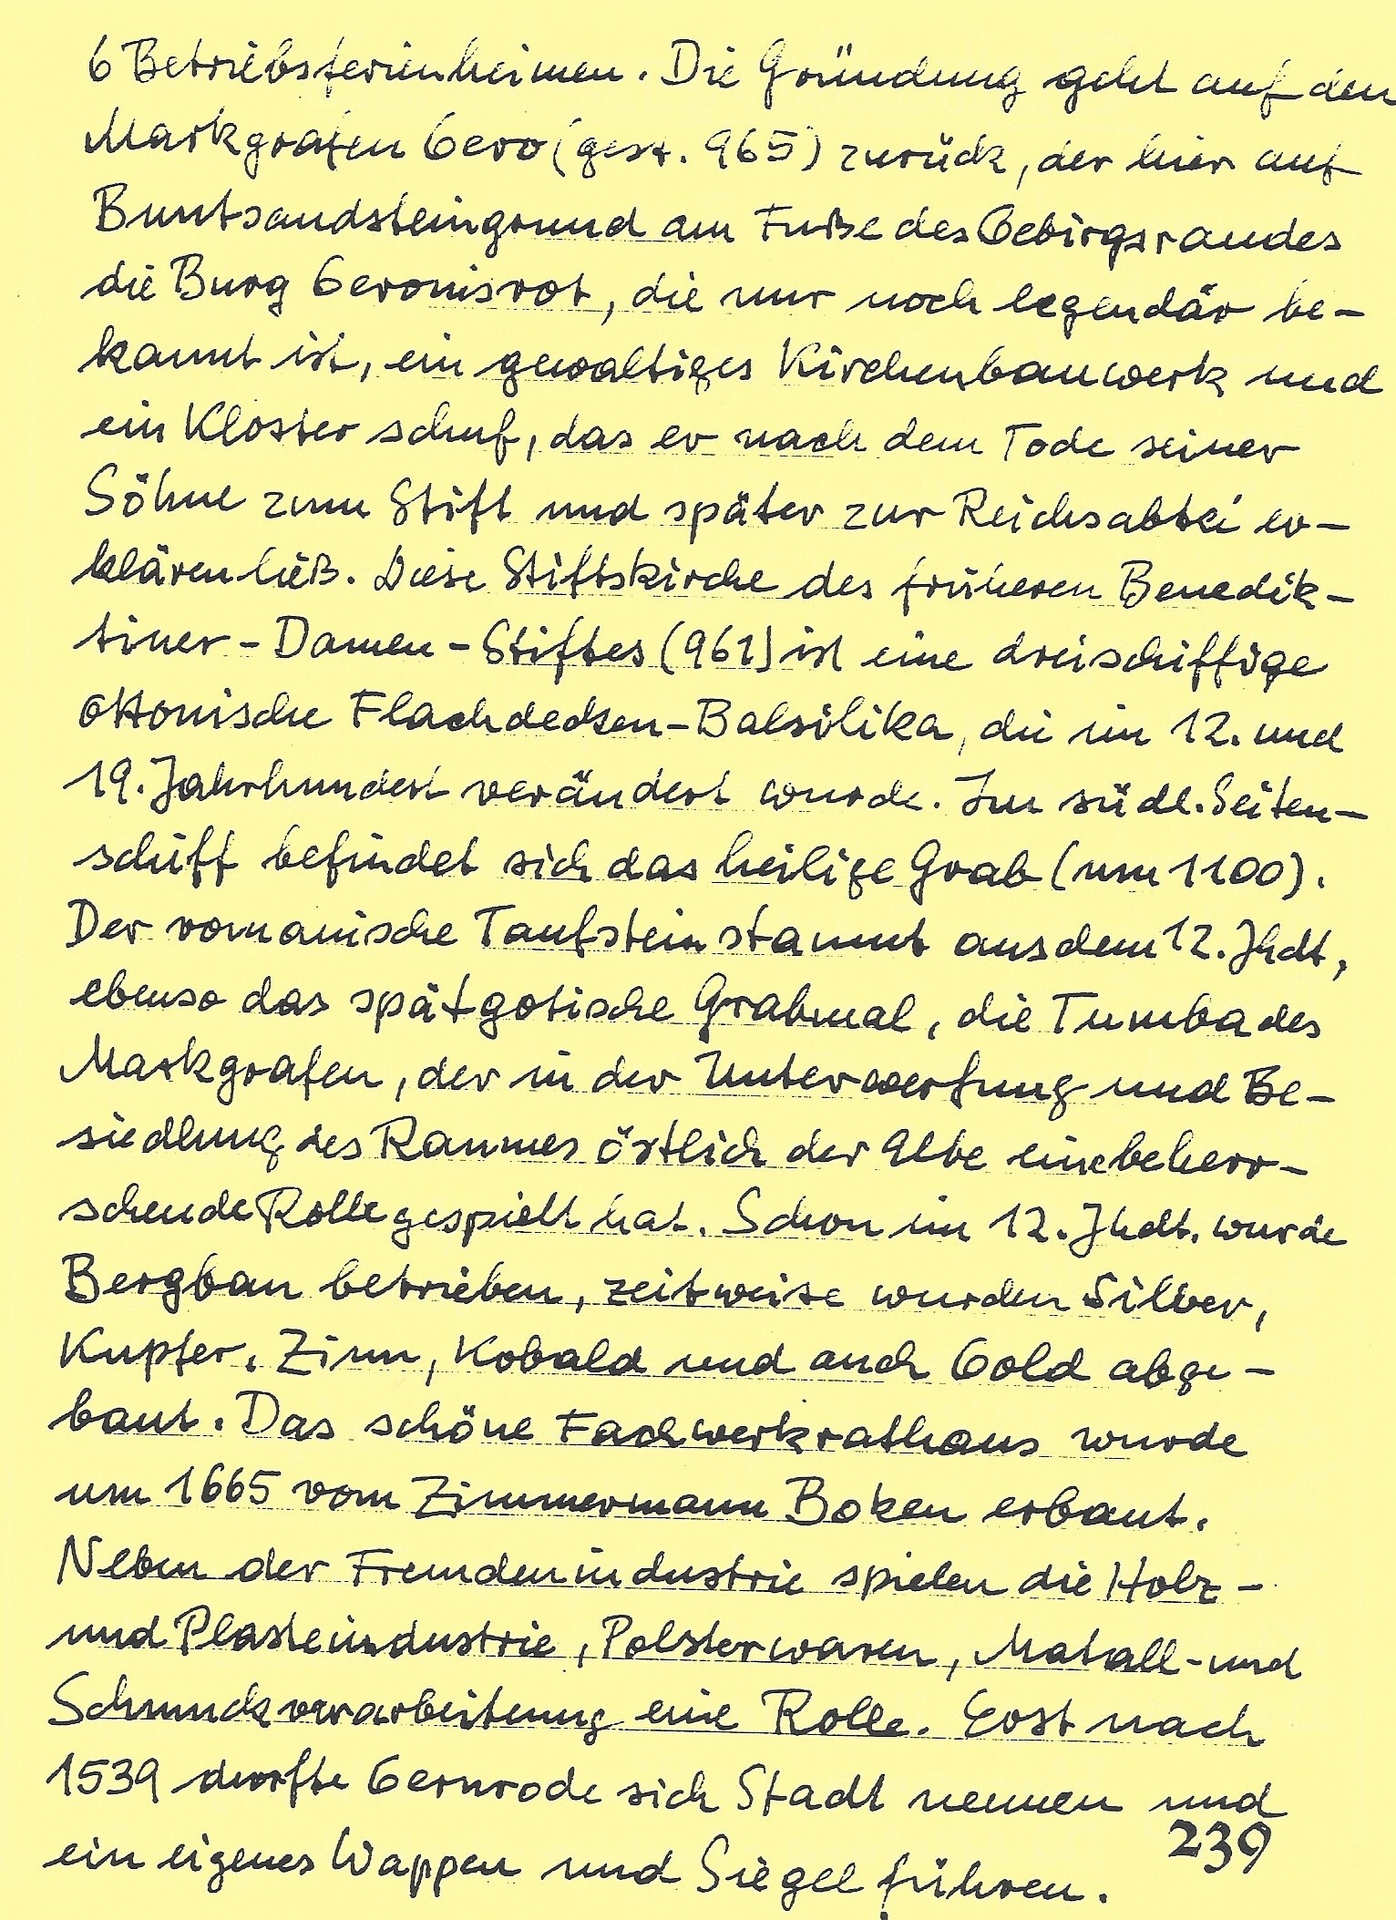 6 Betriebsferienheimen. Die Gründung geht auf den
Markgrafen Gero (gest. 965) zurück, der hier auf
Buntsandsteingrund am Fuße des Gebirgsrandes
die Burg Geronisrot, die nur noch legendär be-
kannt ist, ein gewaltiges Kirchenbauwerk und
ein Kloster schuf, das er nach dem Tode seiner
Söhne zum Stift und später zur Reichsabtei er-
klären ließ. Diese Stiftskirche des früheren Benedik-
tiner-Damen-Stiftes (961) ist eine dreischiffige
ottonische Flachdecken-Balsilika, die im 12. und
19. Jahrhundert verändert wurde. Im südl. Seiten-
schiff befindet sich das heilige Grab (um 1100).
Der romanische Taufstein stammt aus dem 12. Jhdt,
ebenso das spätgotische Grabmal, die Tumba des
Markgrafen, der in der Unterwerfung und Be-
siedlung des Raumes östlich der Elbe eine beherr-
schende Rolle gespielt hat. Schon im 12. Jhdt. wurde
Bergbau betrieben, zeitweise wurden Silber,
Kupfer, Zinn, Kobald und auch Gold abge-
baut. Das schöne Fachwerkrathaus wurde
um 1665 vom Zimmermann Boken erbaut.
Neben der Fremdenindustrie spielen die Holz-
und Plasteindustrie, Polsterwaren, Matall- und
Schmuckverarbeitung eine Rolle. Erst nach
1539 durfte Gernrode sich Stadt nennen und
ein eigenes Wappen und Siegel führen.
239